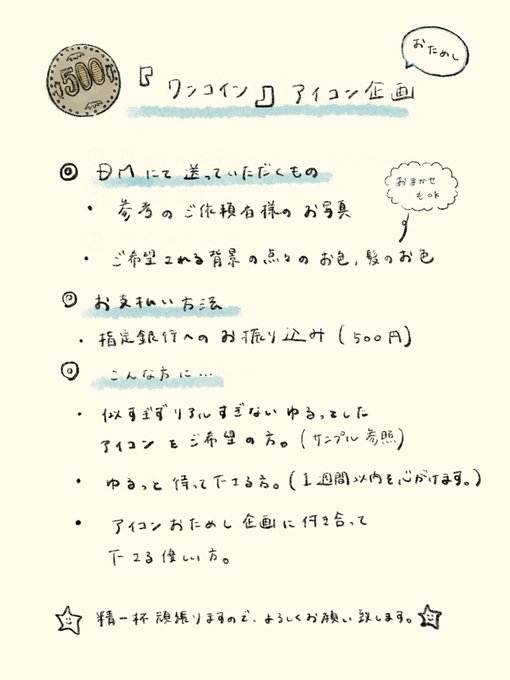 おためし
500
『ワンコイン』アイコン企画
◎ DMにて送っていただくもの
・参考のご依頼者様のお写真
おまかせ
もOK
・ご希望される背景の点々のお色,髪のお色
◎ お支払い方法
・指定銀行へのお振り込み(500円)
◎ こんな方に…
・似すぎずリアルすぎないゆるっとした
アイコンをご希望の方。(サンプル参照)
・ゆるっと待って下さる方。(1週間以内を心がけます。)
・アイコンおためし企画に付き合って
下さる優しい方。
精一杯頑張りますので、よろしくお願い致します。